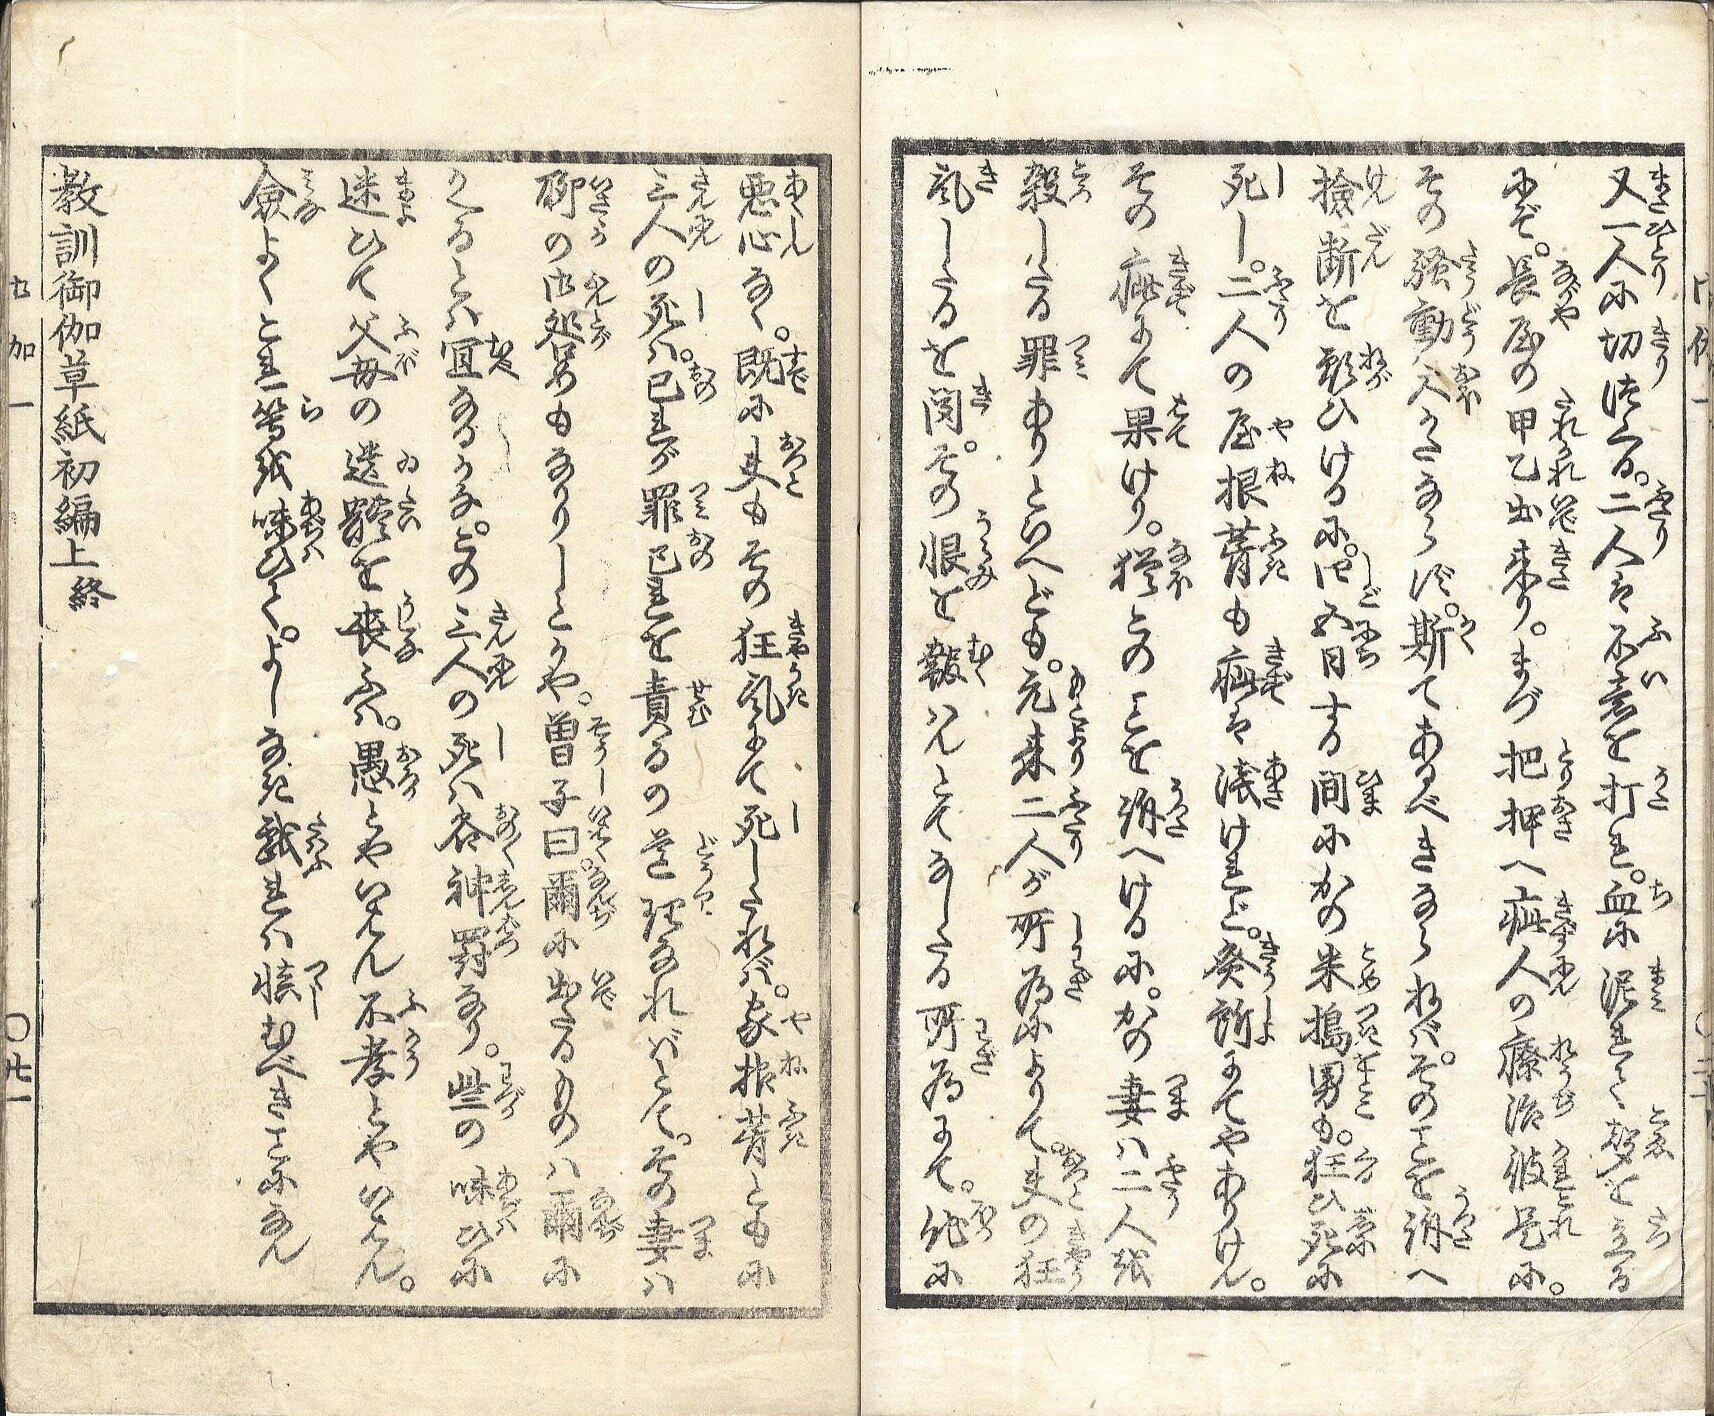 又一人に切付る。二人は不意を打れ。血に泥れて声を立る
にぞ。長屋の甲乙出来り。まづ把押へ疵人の療治彼是に。
その騒動大かたならず。斯てあるべきならねば。そのよしを訴へ
検断を願ひけるに。四五日する間にかの米搗男も。狂ひ死に
死し。二人の屋根葺も疵は浅けれど。癸所にてやありけん。
その疵にて果けり。猶この事を訴へけるに。かの妻は二人
殺したる罪ありといへども。元来二人が所為によりて。夫の狂
乱したるを聞。その恨を報はんとてなしたる所為にて。他に
悪心なく。既に夫もその狂乱にて死したれば。家根葺ともに
三人の死は。己が罪己を責るの道理なればとて。その妻は
聊の御咎めもなかりしとかや。曽子曰。爾に出たるものは爾に
かへるとは宜なるかな。この三人の死は各神罰なり。些の味ひに
迷ひて父母の遺體を喪ふは。愚とやいはん不孝とやいはん。
僉よくこれ等を味ひて。よしなき戯れは慎むべきことになん
教訓御伽草紙初編上終